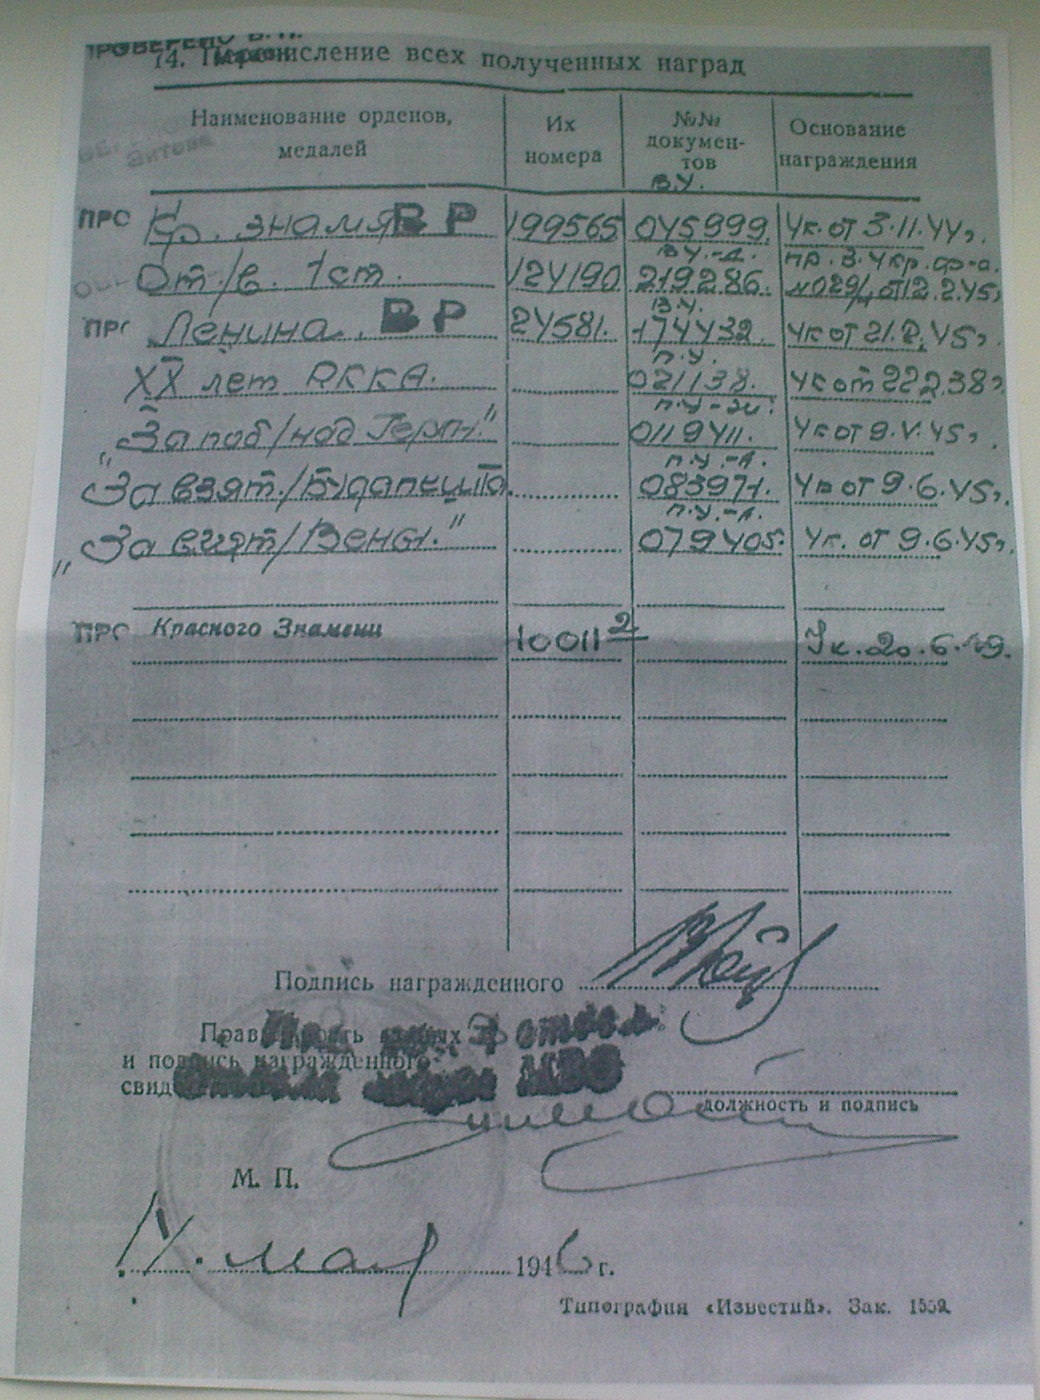 ПРОВЕРЕНО В. П.
74. Перечисление всех полученных наград
Наименование орденов, медалей
Их номера
№№ документов
Основание награждения
Витова
В.У.
ПРО Кр. знамя ВР 199565 045999. Ук. от 3.11.44г.
В.У.-Д. пр. 3. Укр. фр-а.
От./в. 1 ст. 124190 219286. №029/н от 12.2.45г
В.У.
ПРО Ленина. ВР 24581. 174432. Ук от 21.2.45г.
П.У.
XX лет РККА. 021138. Ук от 22.2.38г
П.У-
"За поб/над Герм." 0119411. Ук от 9.V.45г.
П.У.-А.
"За взят./Будапешта. 083971. Ук от 9.6.45г.
П.У.-А.
"За взят/Вены." 079405. Ук. от 9.6.45г.
ПРО Красного Знамени 10011 2 Ук. 20.6.49.
Подпись награжденного
Правильность данных отдел
и подпись награжденного
МВО
должность и подпись
М. П.
14. мая 1946 г.
Типография «Известий». Зак. 1559